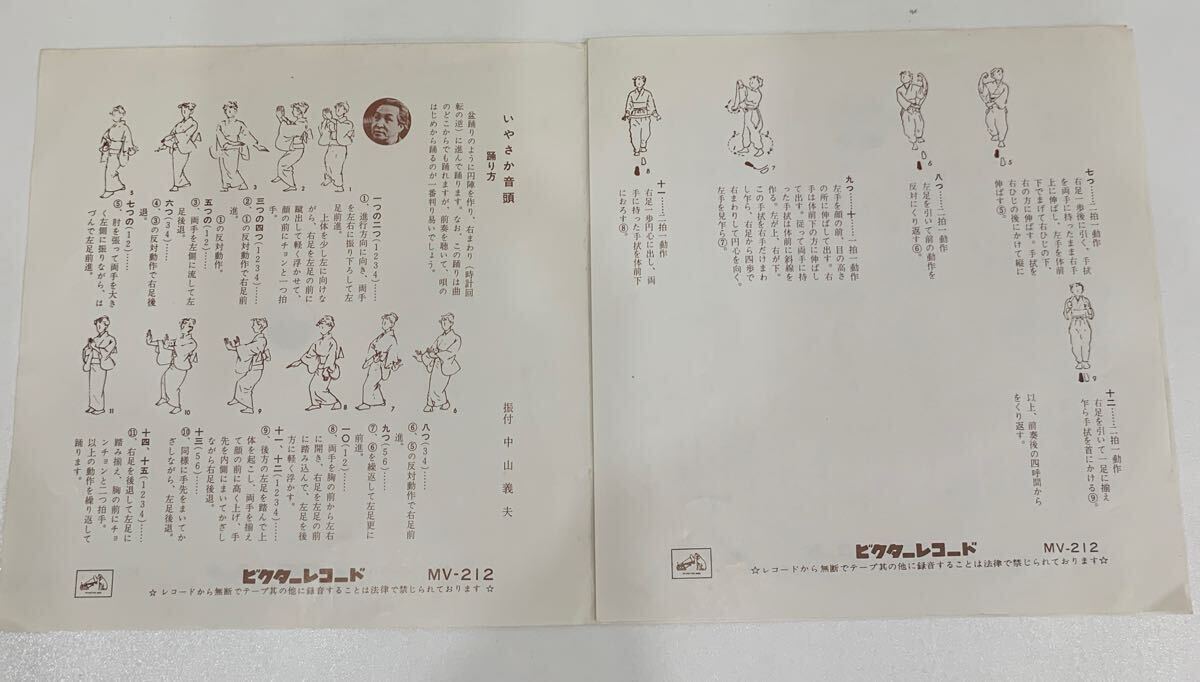 いやさか音頭
踊り方
振付 中山義夫
盆踊りのように円陣を作り、右まわり(時計回
転の逆)に進んで踊ります。なお、この踊りは曲
のどこからでも踊れますが、前奏を聴いて、唄の
はじめから踊るのが一番判り易いでしょう。
一つの二つ(1234)……
①、進行方向に向き、両手
を左右に振り下ろして左
足前進。
上体を少し左に向けな
がら、右足を左足の前に
蹴出して軽く浮かせて、
顔の前にチョンと一つ拍
手。
三つの四つ(1234)……
②、①の反対動作で右足前
進。①の反対動作。
五つの(12)……
③、両手を左側に流して左
足後退。
六つ(34)……
④、③の反対動作で右足後
退。
七つの(12)……
⑤、肘を張って両手を大き
く左側に振りながら、は
づんで左足前進。
1
2
3
4
5
八つ(34)……
⑥、⑤の反対動作で右足前
進。
九つ(56)……
⑦、⑥を繰返して左足更に
前進。
一〇(12)……
⑧、両手を胸の前から左右
に開き、右足を左足の前
に踏み込んで、左足を後
方に軽く浮かす。
十一、十二(1234)……
⑨、後方の左足を踏んで上
体を起こし、両手を揃え
て顔の前に高く上げ、手
先を内側にまいてかざし
ながら右足後退。
十三(56)……
⑩、同様に手先をまいてか
ざしながら、左足後退。
十四、十五(1234)……
⑪、右足を後退して左足に
踏み揃え、胸の前にチョ
ンチョンと二つ拍手。
以上の動作を繰り返して
踊ります。
6
7
8
9
10
11
ビクターレコード MV-212
☆レコードから無断でテープ其の他に録音することは法律で禁じられております☆
七つ……二拍一動作
右足一歩後に引く、手拭
を両手に持ったまま右手
上に伸ばし、左手を体前
下でまげて右ひじの下、
右の方に伸ばす。手拭を
右ひじの後にかけて縦に
伸ばす⑤。
5
八つ……二拍一動作
左足を引いて前の動作を
反対にくり返す⑥。
6
九つ……十……二拍一動作
左手を顔の前、目の高さ
の所に伸ばして出す。右
手は体前下の方に伸ばし
て出す。従って両手に持
った手拭は体前に斜線を
作る。左が上、右が下。
この手拭を右手だけまわ
し乍ら、右足から四歩で
右まわりして円心を向く。
左手を見乍ら⑦。
7
十一……二拍一動作
右足一歩円心に出し、両
手に持った手拭を体前下
におろす⑧。
8
十二……二拍一動作
右足を引いて一足に揃え
乍ら手拭を首にかける⑨。
以上、前奏後の四呼間から
をくり返す。
9
ビクターレコード MV-212
☆レコードから無断でテープ其の他に録音することは法律で禁じられております☆